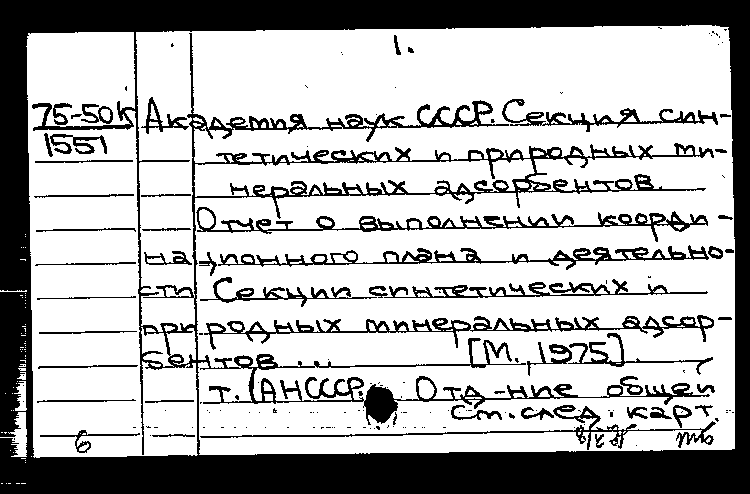 1.
75-50К Академия наук СССР. Секция син-
1551 тетических и природных ми-
неральных адсорбентов.
Отчет о выполнении коорди-
национного плана и деятельно-
сти Секции синтетических и
природных минеральных адсор-
бентов... [М., 1975].
т. (АНСССР. Отд-ние общей
См. след. карт.
6